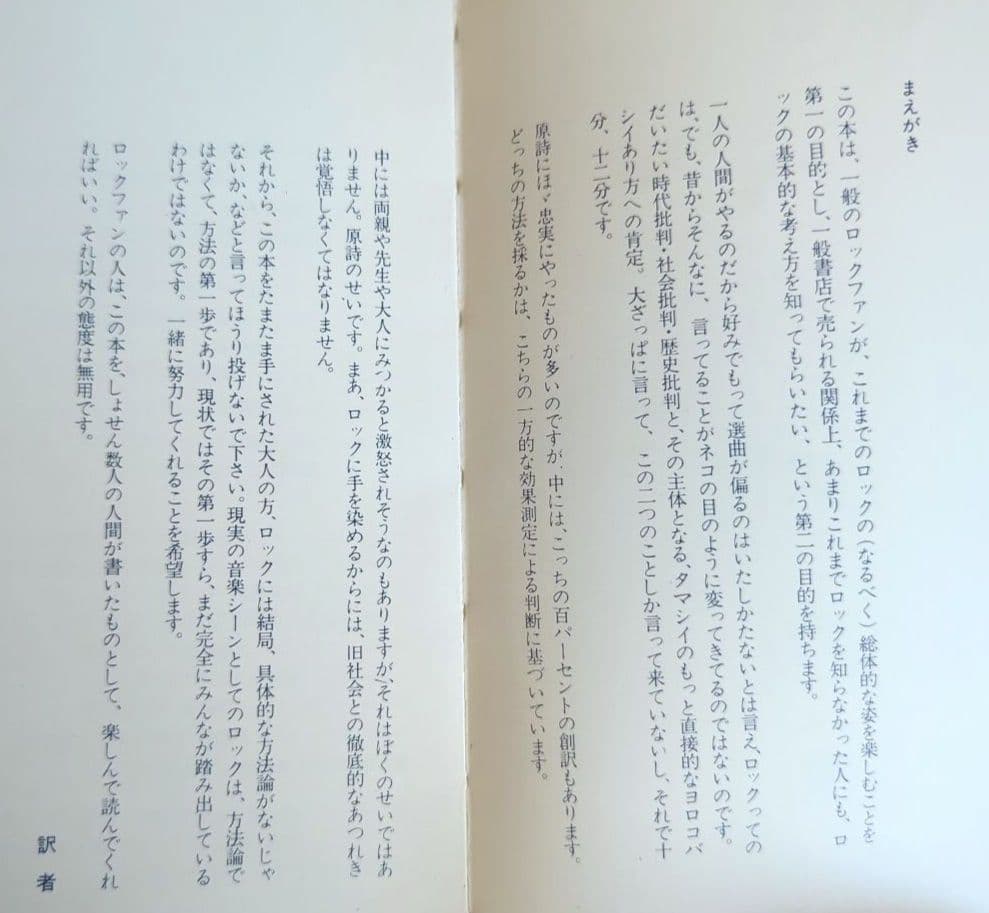 まえがき
この本は、一般のロックファンが、これまでのロックの（なるべく）総体的な姿を楽しむことを
第一の目的とし、一般書店で売られる関係上、あまりこれまでロックを知らなかった人にも、ロ
ックの基本的な考え方を知ってもらいたい、という第二の目的を持ちます。
一人の人間がやるのだから好みでもって選曲が偏るのはいたしかたないとは言え、ロックっての
は、でも、昔からそんなに、言ってることがネコの目のように変ってきてるのではないのです。
だいたい時代批判・社会批判・歴史批判と、その主体となる、タマシイのもっと直接的なヨロコバ
シイあり方への肯定。大ざっぱに言って、この二つのことしか言って来ていないし、それで十
分、十二分です。
原詩にほゞ忠実にやったものが多いのですが、中には、こっちの百パーセントの創訳もあります。
どっちの方法を採るかは、こちらの一方的な効果測定による判断に基づいています。
中には両親や先生や大人にみつかると激怒されそうなのもありますが、それはぼくのせいではあ
りません。原詩のせいです。まあ、ロックに手を染めるからには、旧社会との徹底的なあつれき
は覚悟しなくてはなりません。
それから、この本をたまたま手にされた大人の方、ロックには結局、具体的な方法論がないじゃ
ないか、などと言ってほうり投げないで下さい。現実の音楽シーンとしてのロックは、方法論で
はなくて、方法の第一歩であり、現状ではその第一歩すら、まだ完全にみんなが踏み出している
わけではないのです。一緒に努力してくれることを希望します。
ロックファンの人は、この本を、しょせん数人の人間が書いたものとして、楽しんで読んでくれ
ればいい。それ以外の態度は無用です。
訳者